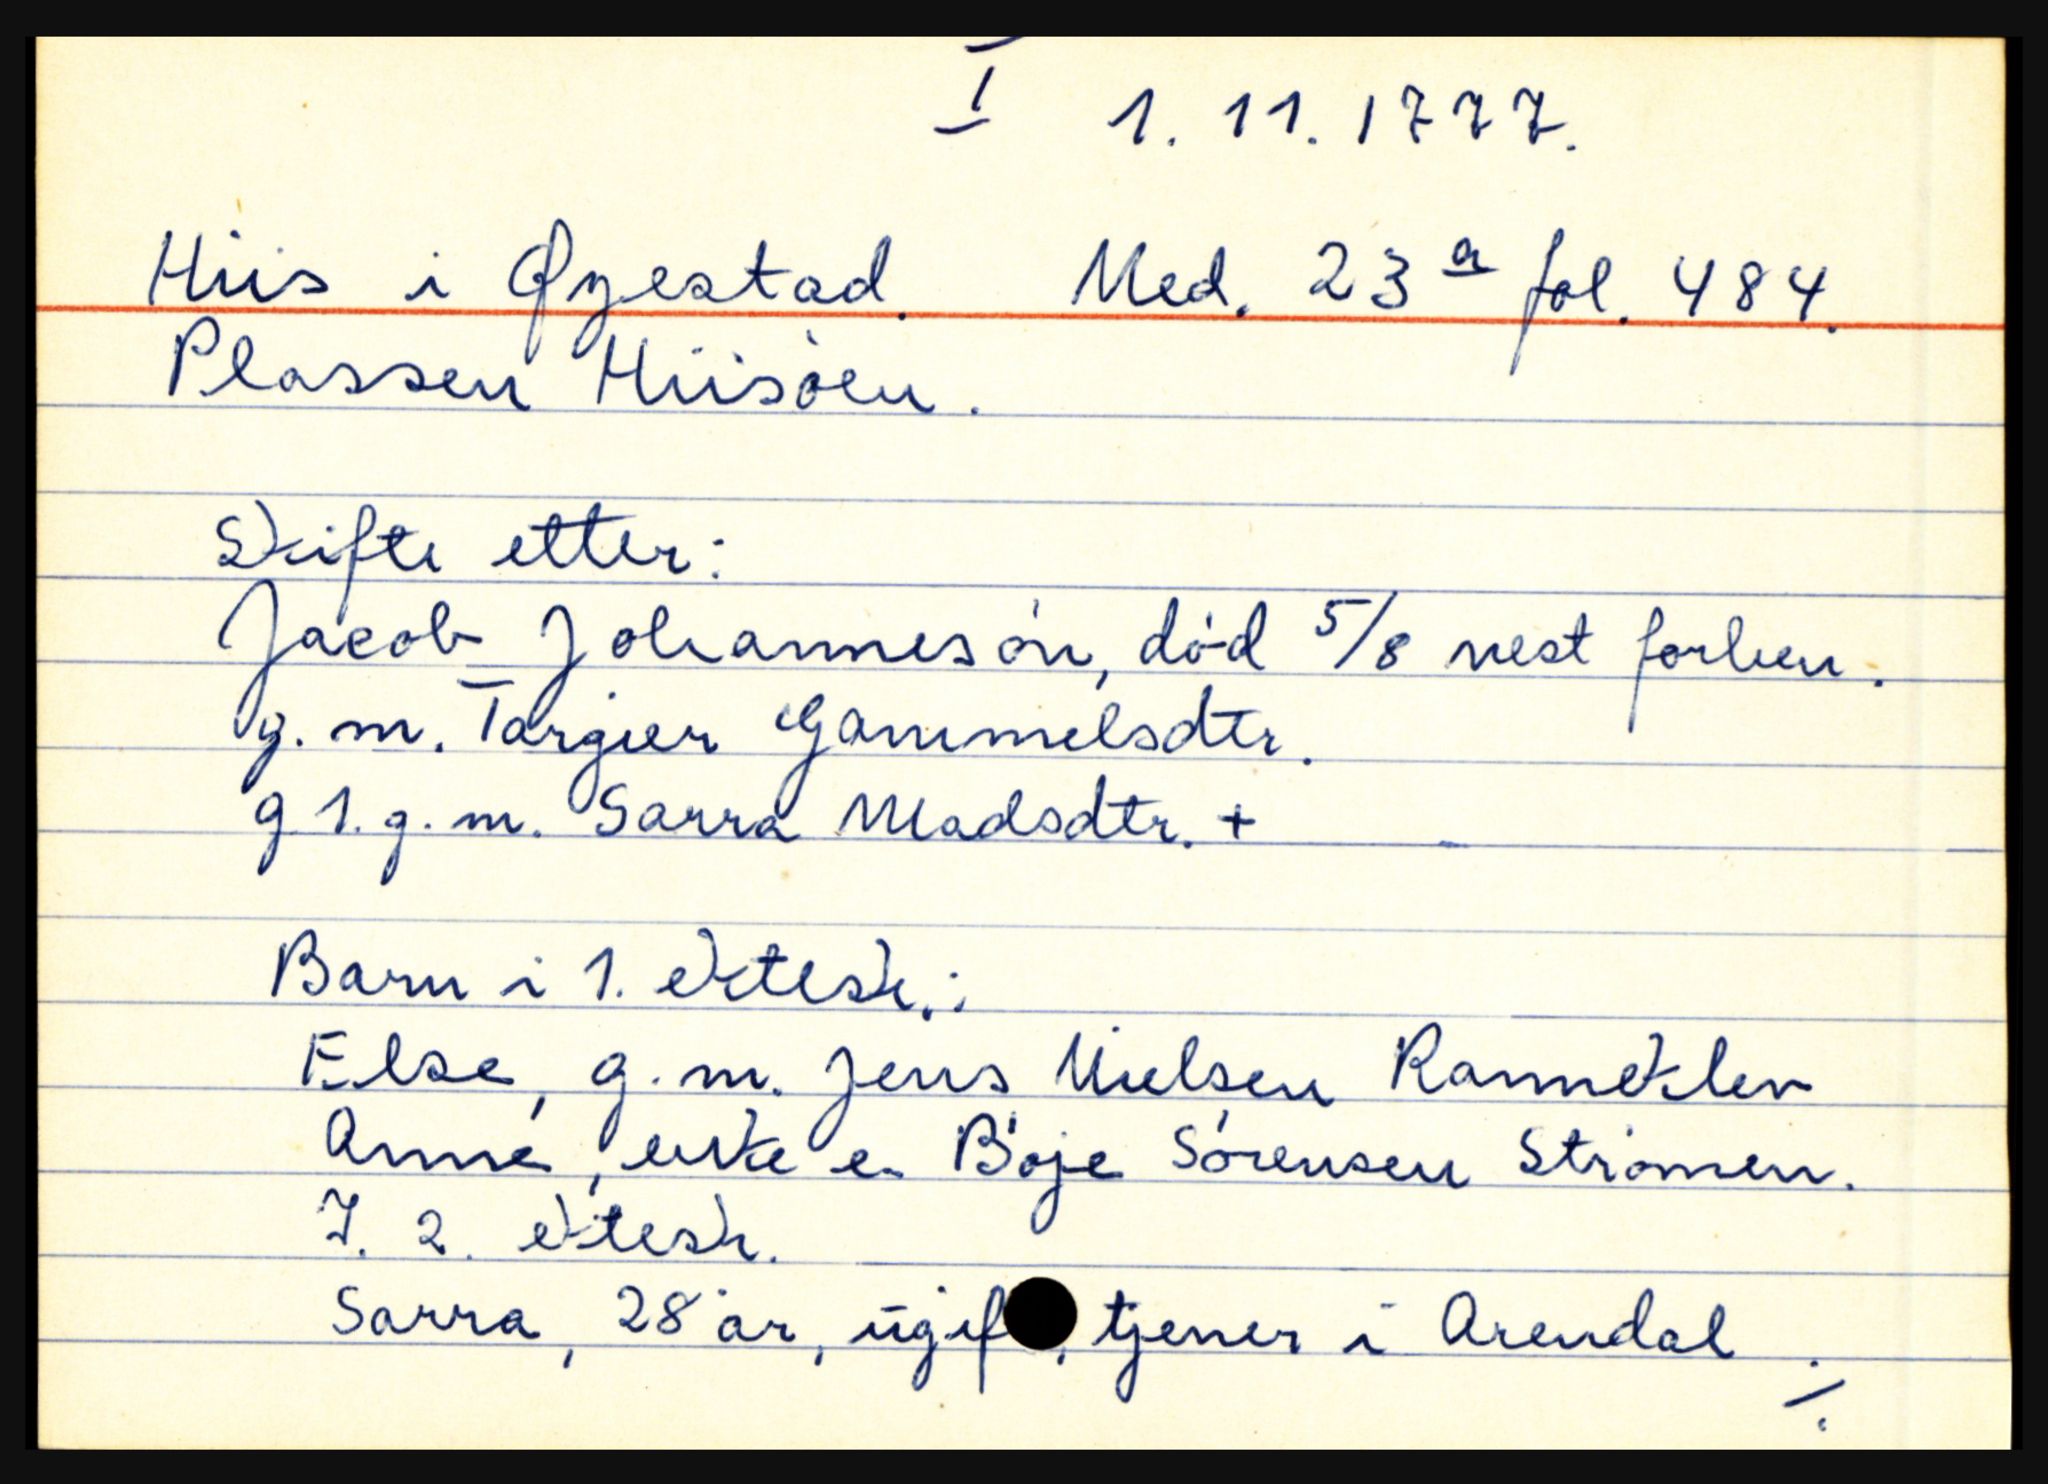 I 1. 11. 1777.
Hiis i Øyestad. Ned. 23 a fol. 484.
Plassen Hiisøen.
Skifte etter:
Jacob Johannesøn, død 5/8 nest forhen.
g. m. Targier Gammelsdtr.
g 1. g. m. Sarra Madsdtr. +
Barn i 1. ektesk.:
Else, g. m. Jens Nielsen Ranneklev
Anne, enke e. Bøje Sørensen Strømen.
I. 2. ektesk.
Sarra, 28 år, ugif, tjener i Arendal.
./.